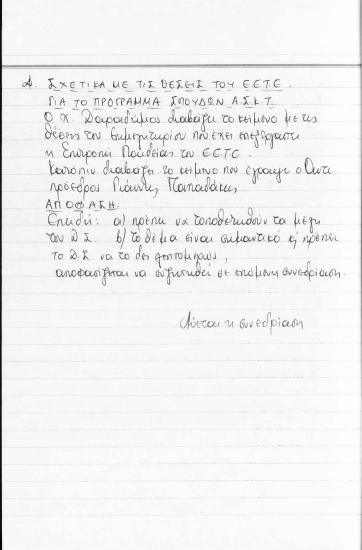 Δ. ΣΧΕΤΙΚΑ ΜΕ ΤΙΣ ΘΕΣΕΙΣ ΤΟΥ ΕΕΤΕ
ΓΙΑ ΤΟ ΠΡΟΓΡΑΜΜΑ ΣΠΟΥΔΩΝ Α.Σ.Κ.Τ.
Ο Χ. Δαραδήμος διαβάζει το κείμενο με τις
θέσεις του Επιμελητηρίου που έχει επεξεργαστεί
η Επιτροπή Παιδείας του ΕΕΤΕ.
Κατόπιν διαβάζει το κείμενο που έγραψε ο Αντι
πρόεδρος Γιάννης Παπαδάκης.
ΑΠΟΦΑΣΗ:
Επειδή: α) πρέπει να τοποθετηθούν τα μέλη
του Δ.Σ. β) το θέμα είναι σημαντικό & πρέπει
το Δ.Σ να το δει λεπτομερώς,
αποφασίζεται να συζητηθεί σε επόμενη συνεδρίαση.
Λύεται η συνεδρίαση